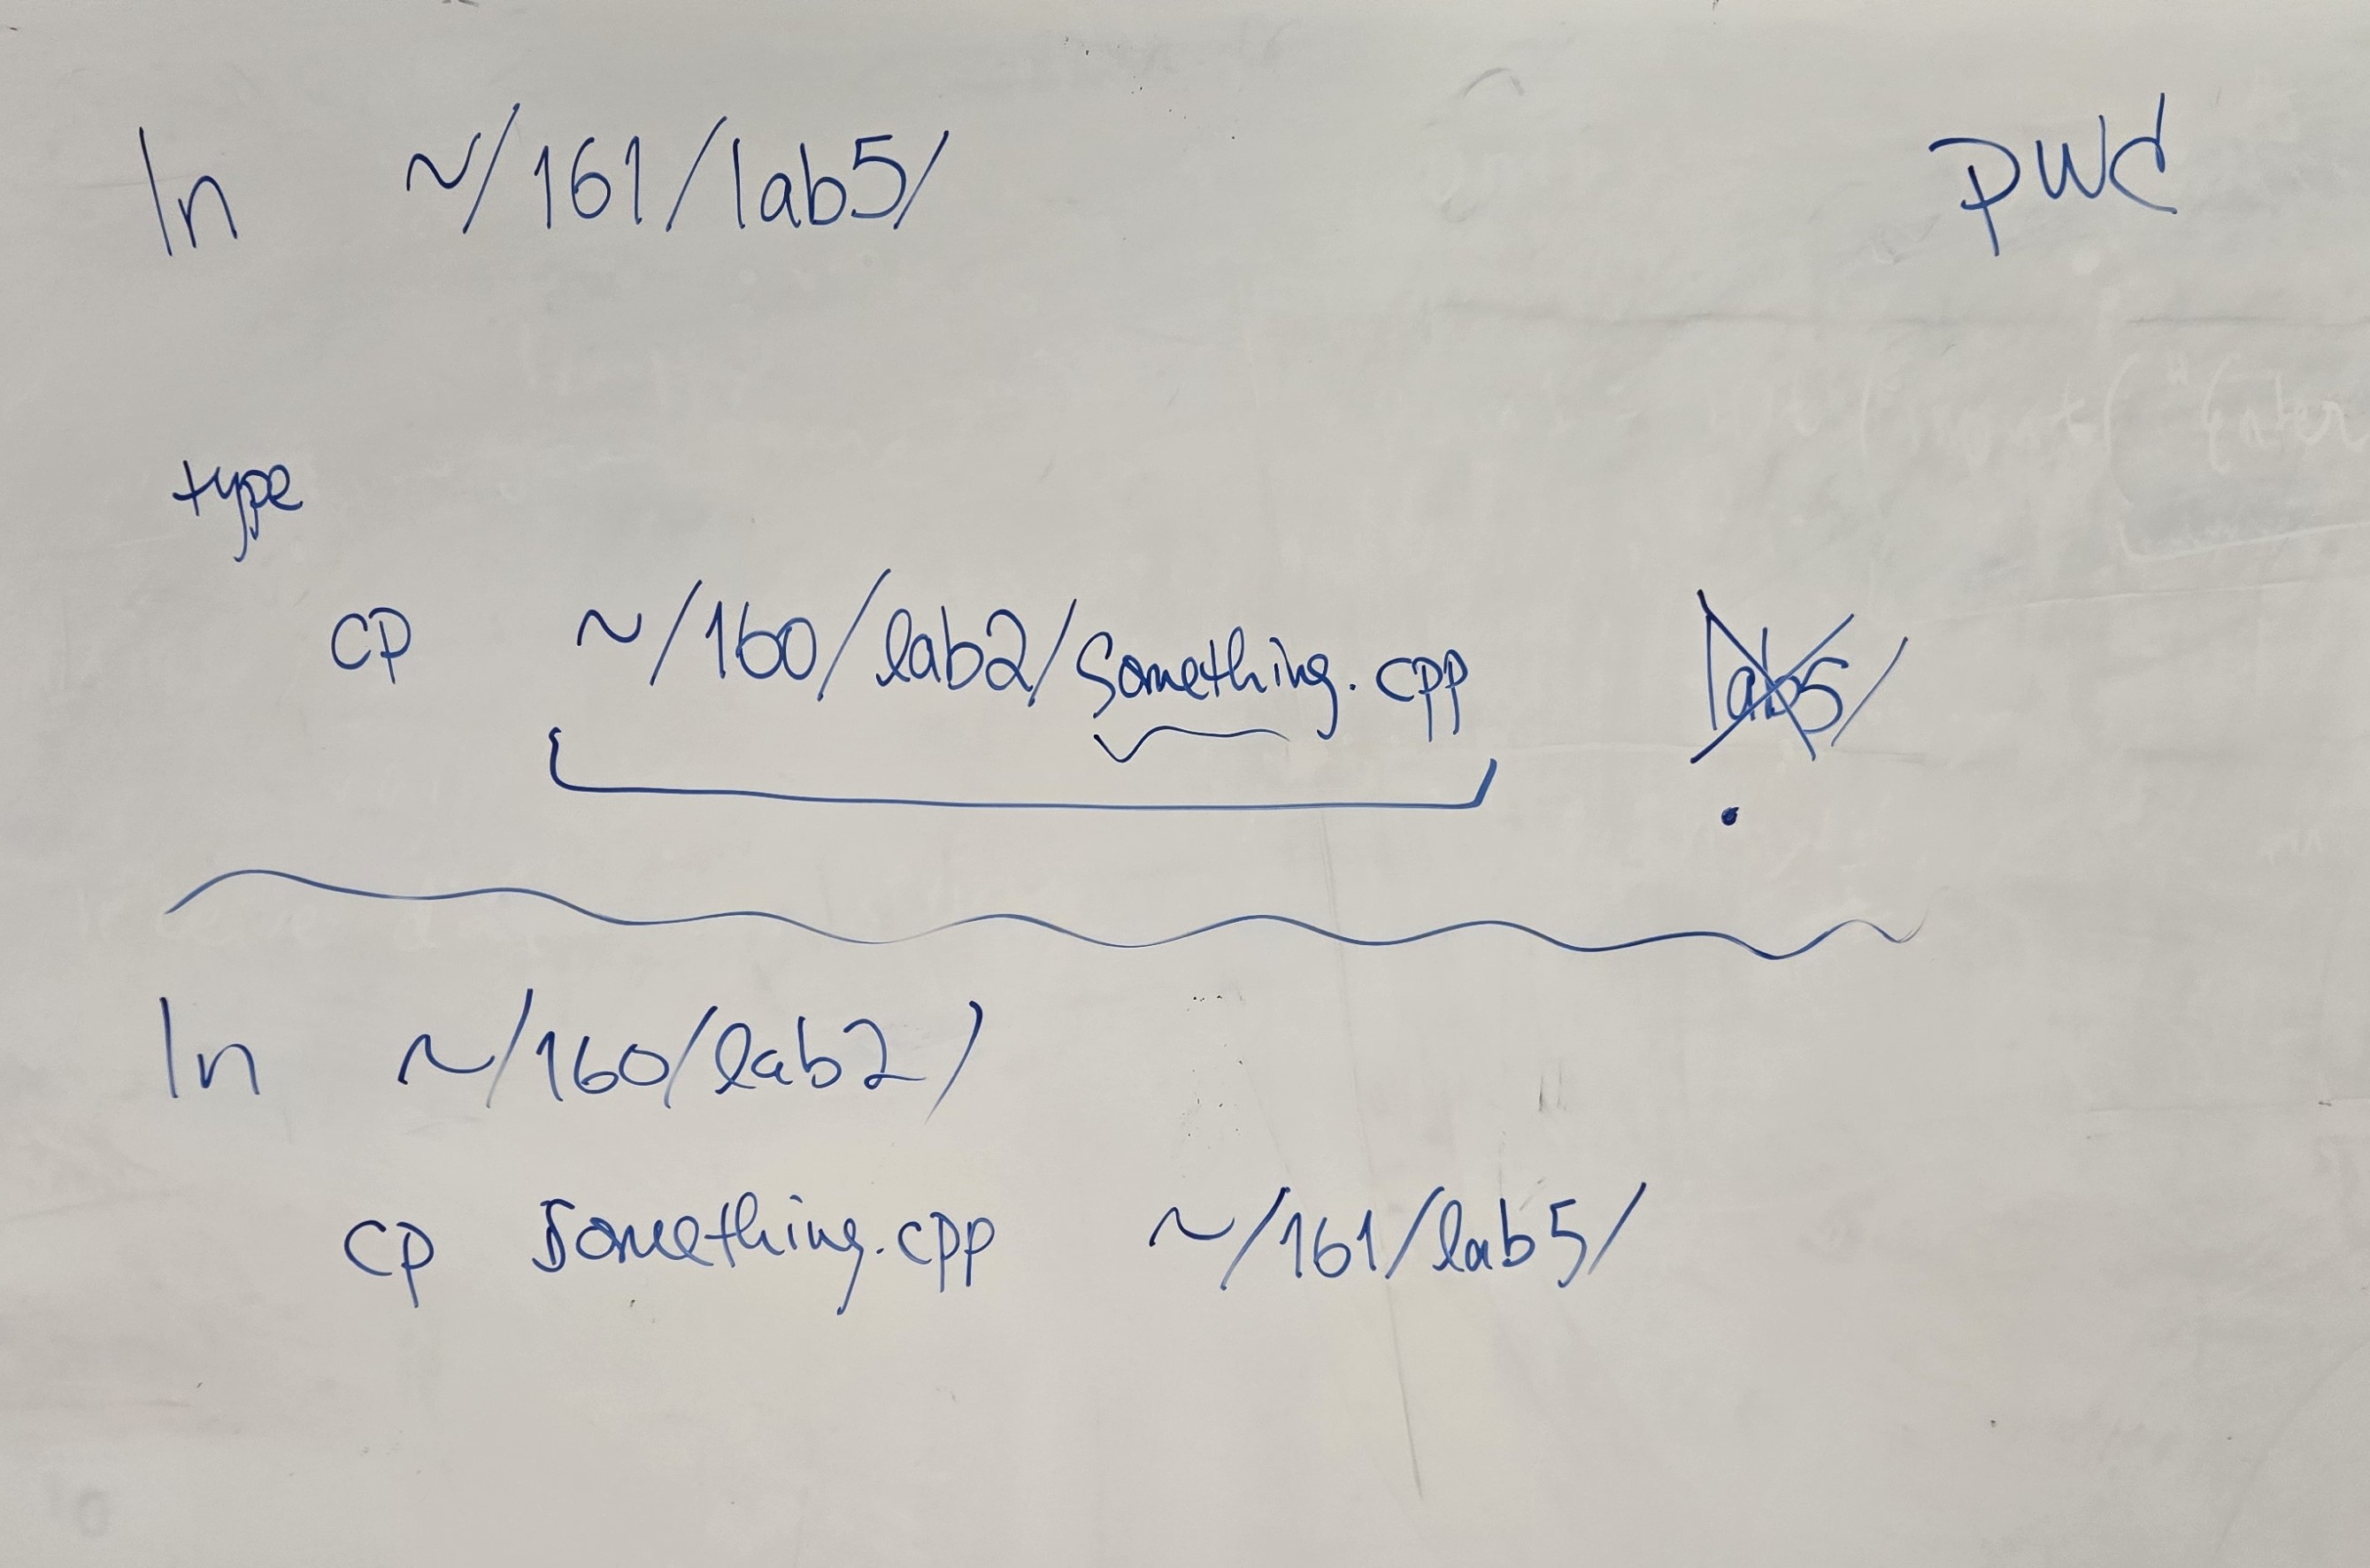 In ~/161/lab5/ pwd
type
cp ~/160/lab2/something.cpp lab5/
.
In ~/160/lab2/
cp something.cpp ~/161/lab5/